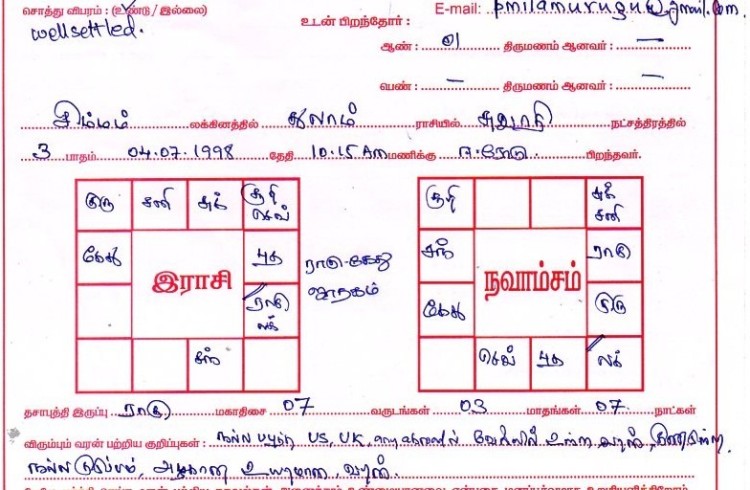 சொத்து விபரம் : (உண்டு / இல்லை) E-mail:
wellsettled. உடன் பிறந்தோர் :
ஆண் : 01 திருமணம் ஆனவர் : —
பெண் : — திருமணம் ஆனவர் : —
சிம்மம் லக்கினத்தில் துலாம் ராசியில் சுவாதி நட்சத்திரத்தில்
3 பாதம் 04.07.1998 தேதி 10.15 Am மணிக்கு பிறந்தவர்.
குரு சனி சுக் சூரி செவ்
கேது புத
இராசி
ராகு லக்
சந்
ராகு-கேது
ஜாதகம்
சூரி சுக் சனி
சந் ராகு
நவாம்சம்
கேது குரு
செவ் புத லக்
தசாபுத்தி இருப்பு ராகு மகாதிசை 07 வருடங்கள் 03 மாதங்கள் 07 நாட்கள்
விரும்பும் வரன் பற்றிய குறிப்புகள் : நல்ல US, UK, வேலையில் உள்ள வரன்,
நல்ல குடும்பம், அழகான உயரமான, வரன்.